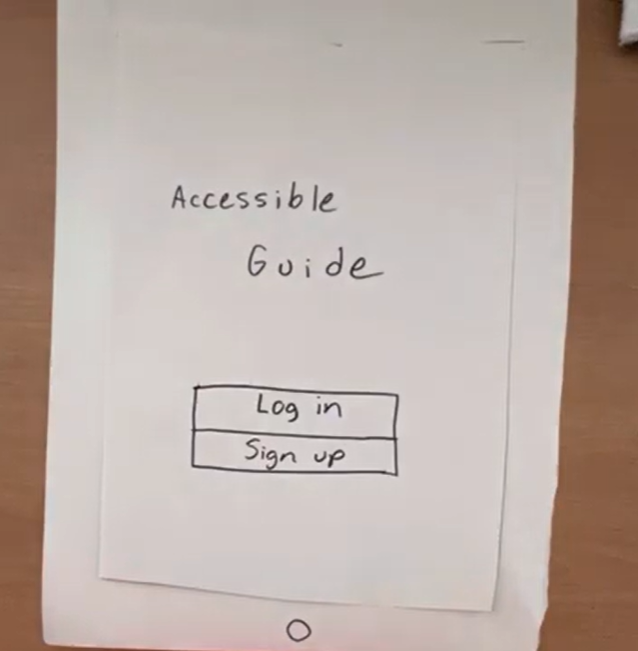 Accessible
Guide
Log in
Sign up